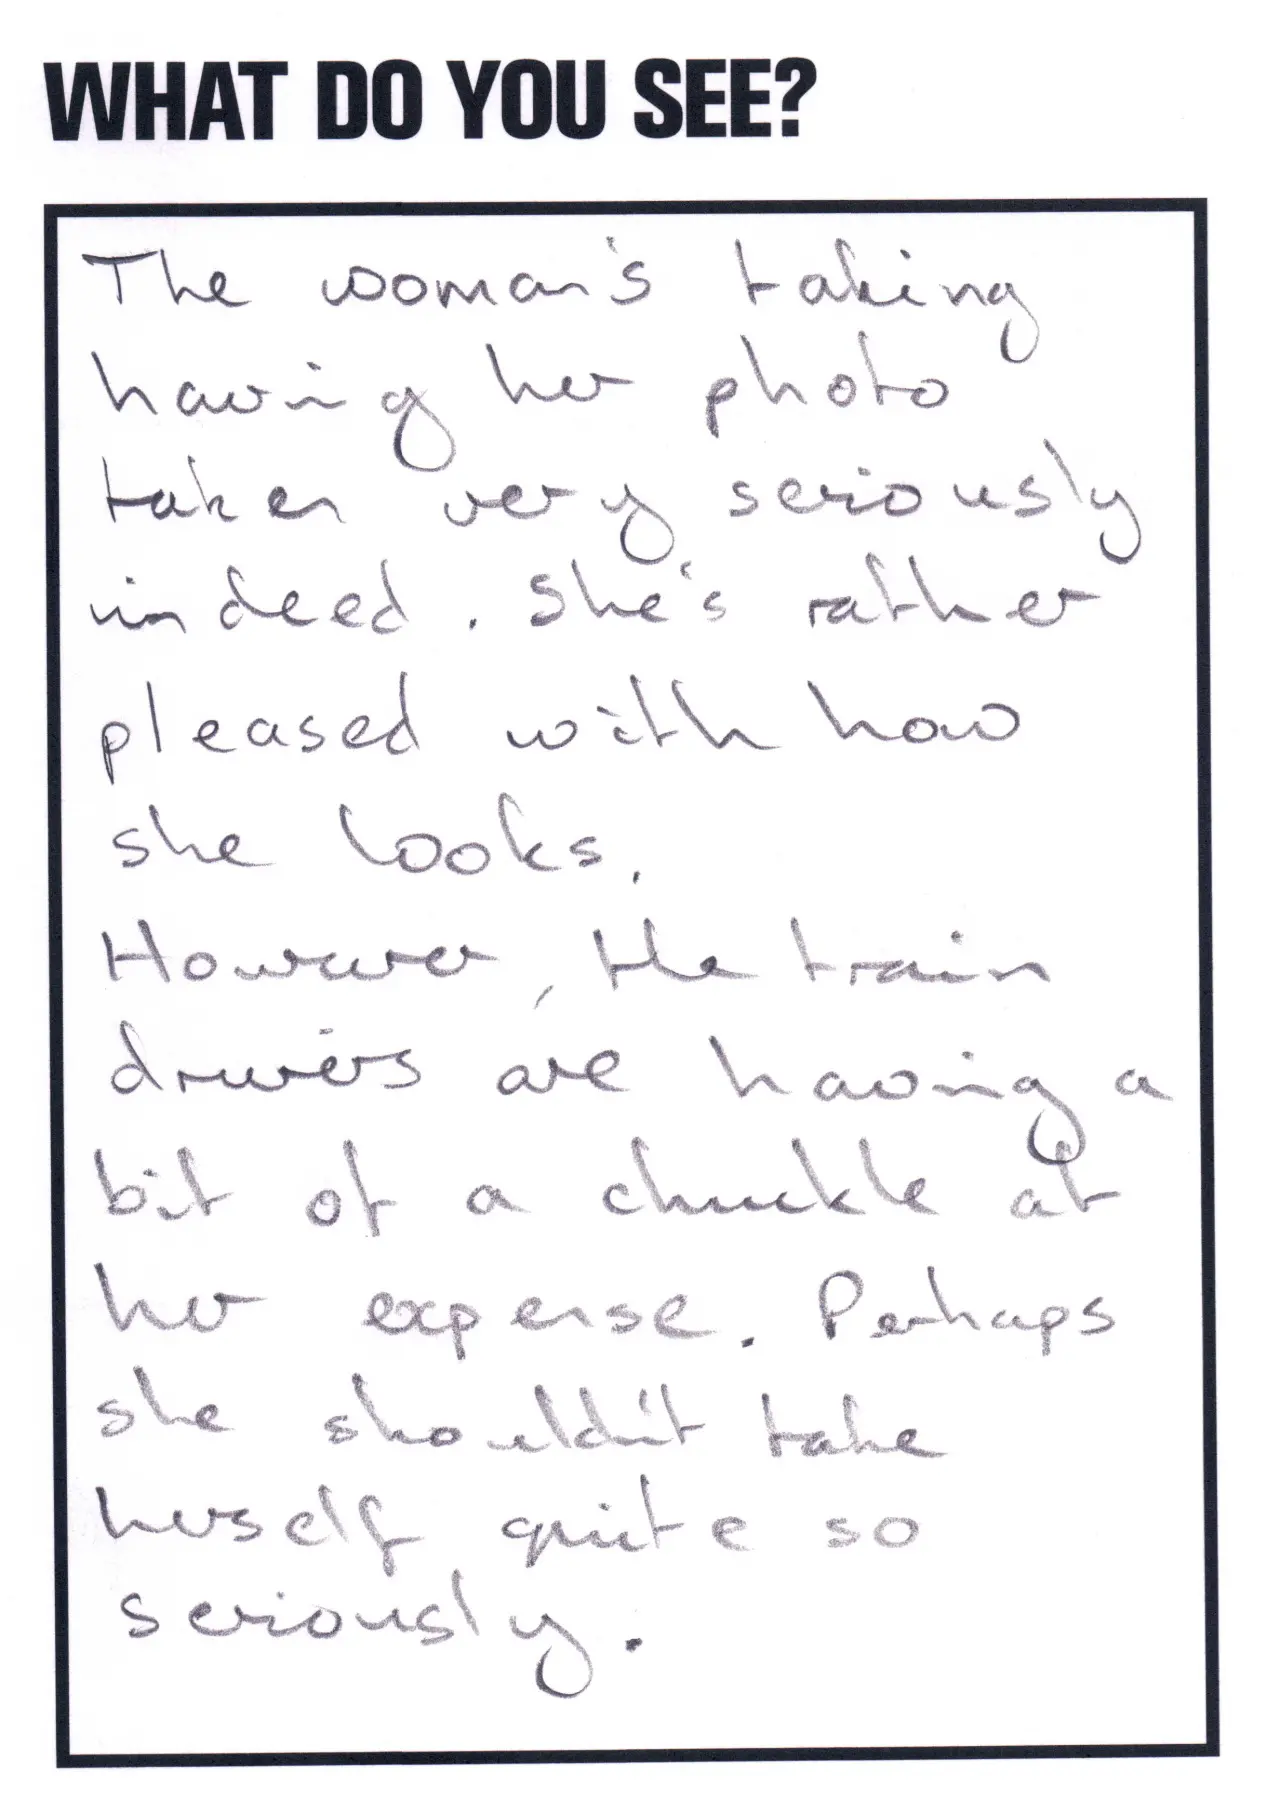 WHAT DO YOU SEE?
The woman's taking
having her photo
taken very seriously
indeed. She's rather
pleased with how
she looks.
However, the train
drivers are having a
bit of a chuckle at
her expense. Perhaps
she shouldn't take
herself quite so
seriously.